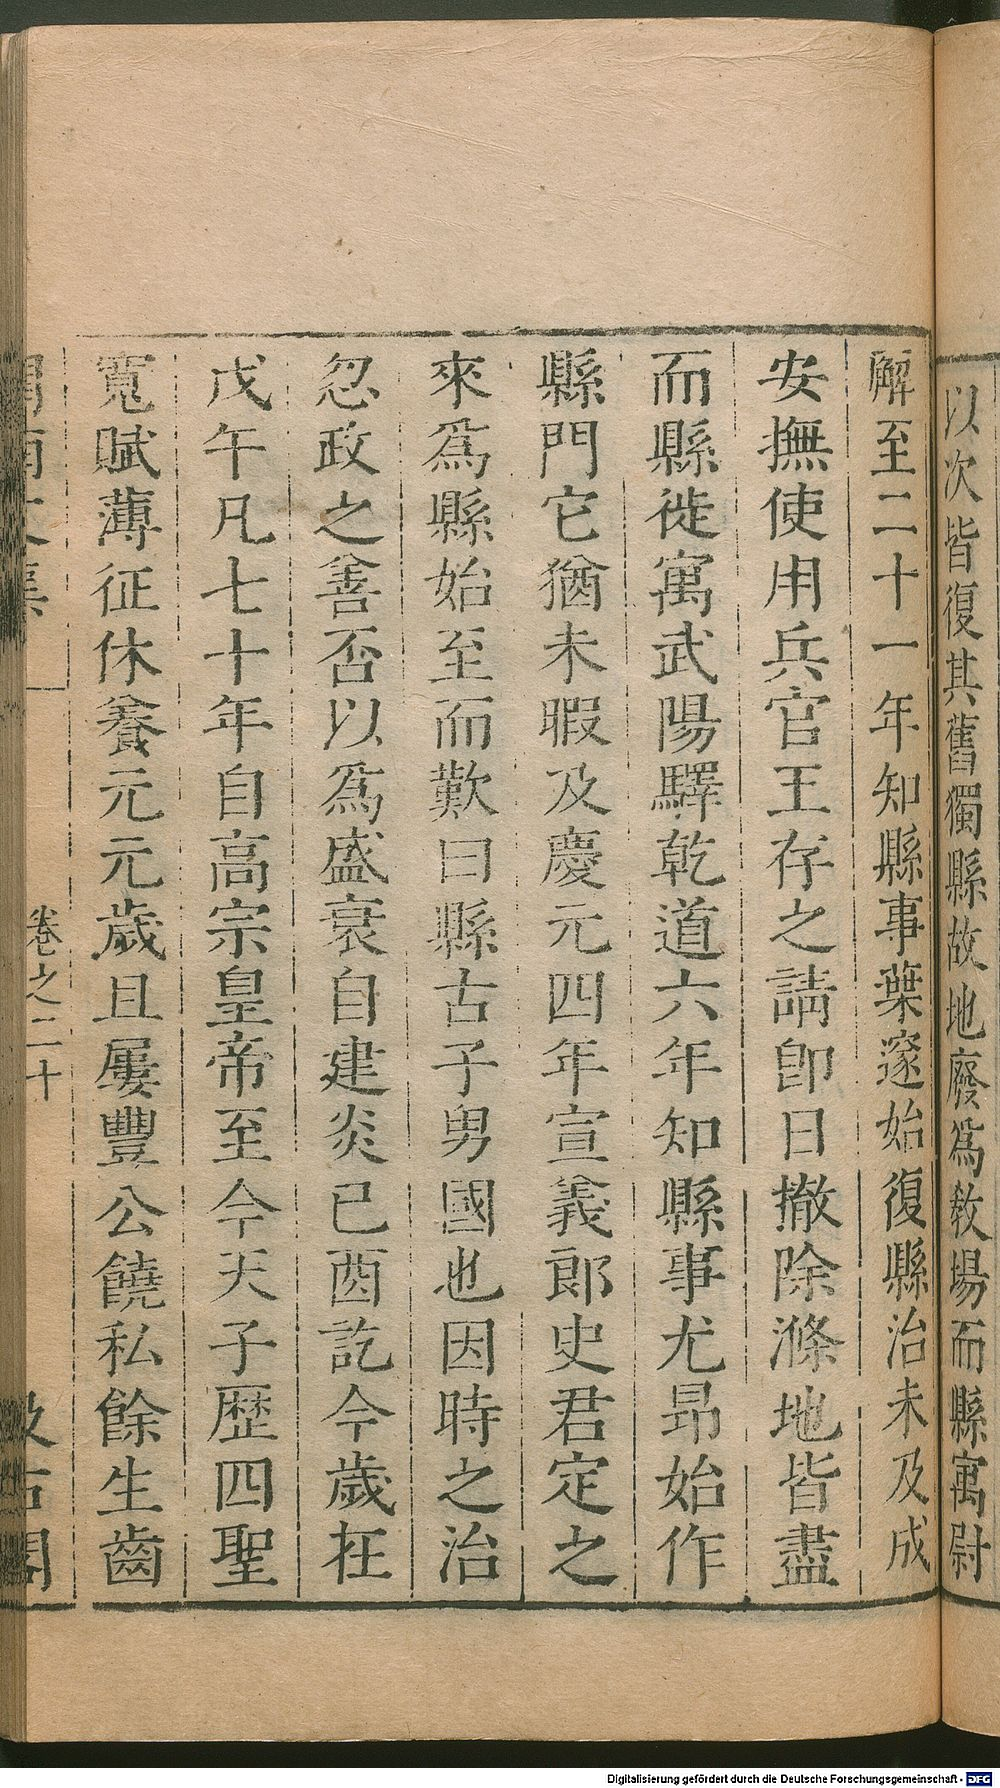 以次皆復其舊獨縣故地廢爲教場而縣寓尉
廨至二十一年知縣事葉邃始復縣治未及成
安撫使用兵官王存之請卽日撤除滌地皆盡
而縣徙寓武陽驛乾道六年知縣事尤昂始作
縣門它猶未暇及慶元四年宣義郎史君定之
來爲縣始至而歎曰縣古子男國也因時之治
忽政之善否以爲盛衰自建炎己酉訖今歲在
戊午凡七十年自高宗皇帝至今天子歷四聖
寬賦薄征休養元元歲且屢豐公饒私餘生齒
渭南文集 卷之二十 汲古閣
Digitalisierung gefördert durch die Deutsche Forschungsgemeinschaft - DFG